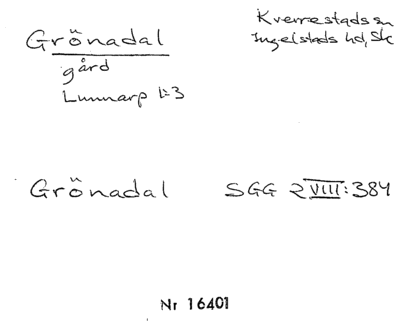 Grönadal
gård
Lunnarp 1:3
Kverrestads sn
Ingelstads hd, Sk
Grönadal SGG 2 VIII: 384
Nr 16401